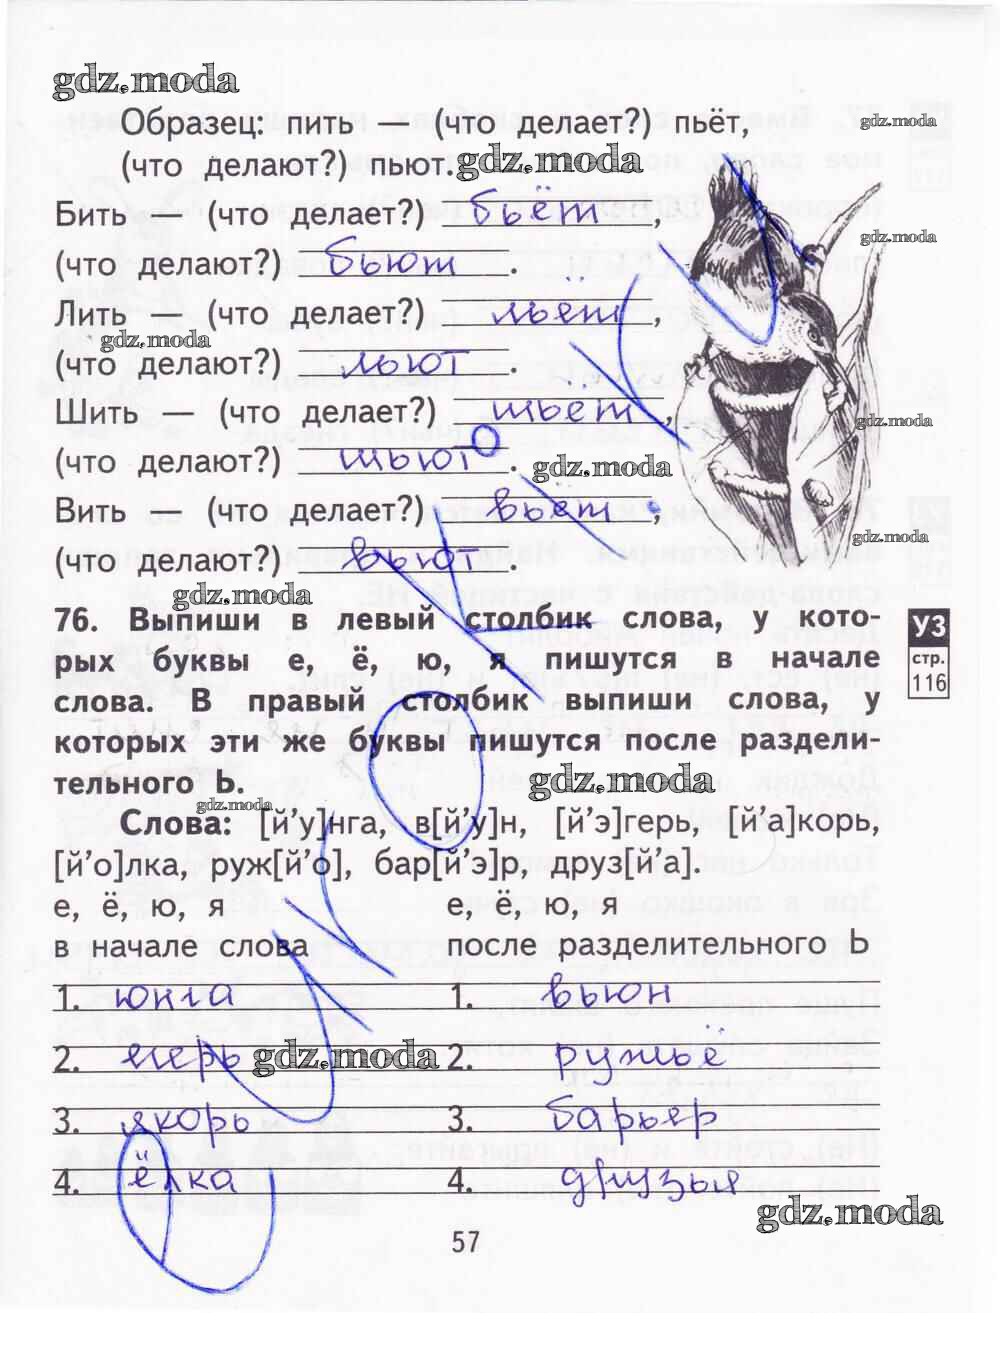 gdz.moda
Образец: пить — (что делает?) пьёт,
gdz.moda
(что делают?) пьют. gdz.moda
Бить — (что делает?) бьёт,
gdz.moda
(что делают?) бьют.
Лить — (что делает?) льёт,
gdz.moda
(что делают?) льют.
Шить — (что делает?) шьёт,
gdz.moda
(что делают?) шьют.
gdz.moda
Вить — (что делает?) вьёт,
gdz.moda
(что делают?) вьют.
gdz.moda
76. Выпиши в левый столбик слова, у кото-
УЗ
рых буквы е, ё, ю, я пишутся в начале
стр.
116
слова. В правый столбик выпиши слова, у
которых эти же буквы пишутся после раздели-
тельного Ь.
gdz.moda
gdz.moda
Слова: [й’у]нга, в[й’у]н, [й’э]герь, [й’а]корь,
[й’о]лка, руж[й’о], бар[й’э]р, друз[й’а].
е, ё, ю, я е, ё, ю, я
в начале слова после разделительного Ь
1. юнга 1. вьюн
2. егерь gdz.moda 2. ружьё
3. якорь 3. барьер
4. ёлка 4. друзья
gdz.moda
57